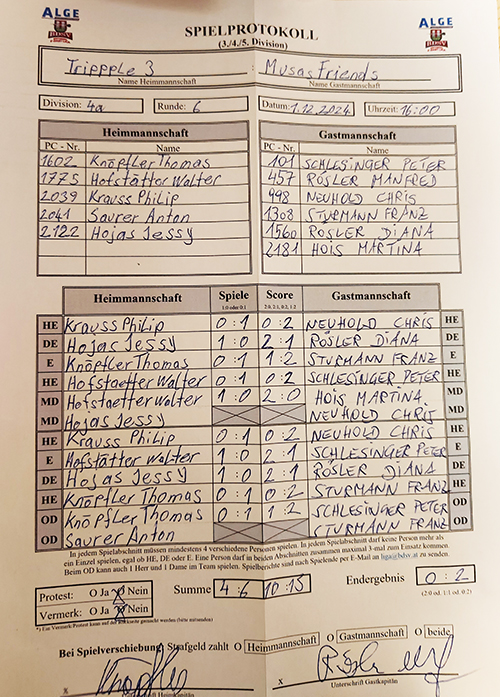 ALGE
ALGE
BDSV
BDSV
SPIELPROTOKOLL
(3./4./5. Division)
Trippple 3 : Musas Friends
Name Heimmannschaft Name Gastmannschaft
Division: 4a Runde: 6 Datum: 1.12.2024 Uhrzeit: 16:00
Heimmannschaft Gastmannschaft
PC - Nr. Name PC - Nr. Name
1602 Knöpfler Thomas 101 SCHLESINGER PETER
1775 Hofstätter Walter 457 RÖSLER MANFRED
2039 Krauss Philip 998 NEUHOLD CHRIS
2041 Saurer Anton 1308 STURMANN FRANZ
2122 Hojas Jessy 1560 RÖSLER DIANA
2181 HOIS MARTINA
Heimmannschaft Spiele Score Gastmannschaft
1:0 oder 0:1 2:0, 2:1, 0:2, 1:2
HE Krauss Philip 0 : 1 0 : 2 NEUHOLD CHRIS HE
DE Hojas Jessy 1 : 0 2 : 1 RÖSLER DIANA DE
E Knöpfler Thomas 0 : 1 1 : 2 STURMANN FRANZ E
HE Hofstaetter Walter 0 : 1 0 : 2 SCHLESINGER PETER HE
MD Hofstaetter Walter 1 : 0 2 : 0 HOIS MARTINA MD
MD Hojas Jessy NEUHOLD CHRIS MD
HE Krauss Philip 0 : 1 0 : 2 NEUHOLD CHRIS HE
E Hofstätter Walter 1 : 0 2 : 1 SCHLESINGER PETER E
DE Hojas Jessy 1 : 0 2 : 1 RÖSLER DIANA DE
HE Knöpfler Thomas 0 : 1 0 : 2 STURMANN FRANZ HE
OD Knöpfler Thomas 0 : 1 1 : 2 SCHLESINGER PETER OD
OD Saurer Anton STURMANN FRANZ OD
In jedem Spielabschnitt müssen mindestens 4 verschiedene Personen spielen. In jedem Spielabschnitt darf keine Person mehr als
ein Einzel spielen, egal ob HE, DE oder E. Eine Person darf in beiden Abschnitten zusammen maximal 3-mal zum Einsatz kommen.
Beim OD kann auch 1 Herr und 1 Dame im Team spielen. Spielberichte sind nach Spielende per E-Mail an liga@bdsv.at
Protest: O Ja O Nein Summe 4 : 6 10 : 15 Endergebnis 0 : 2
Vermerk: O Ja O Nein (2:0 od. 1:1 od. 0:2)
Bei Spielverschiebung Strafgeld zahlt O Heimmannschaft O Gastmannschaft O beide
x x
Unterschrift Gastkapitän